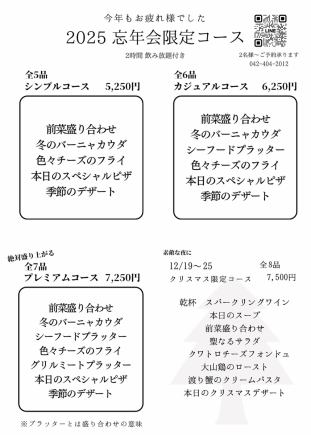 今年もお疲れ様でした
2025 忘年会限定コース
LINE
2時間 飲み放題付き
2名様〜ご予約承ります
042-404-2012
全5品
シンプルコース 5,250円
前菜盛り合わせ
冬のバーニャカウダ
色々チーズのフライ
本日のスペシャルピザ
季節のデザート
全6品
カジュアルコース 6,250円
前菜盛り合わせ
冬のバーニャカウダ
シーフードプラッター
色々チーズのフライ
本日のスペシャルピザ
季節のデザート
絶対盛り上がる
全7品
プレミアムコース 7,250円
前菜盛り合わせ
冬のバーニャカウダ
シーフードプラッター
色々チーズのフライ
グリルミートプラッター
本日のスペシャルピザ
季節のデザート
※プラッターとは盛り合わせの意味
素敵な夜に
12/19〜25 全8品
クリスマス限定コース 7,500円
乾杯 スパークリングワイン
本日のスープ
前菜盛り合わせ
聖なるサラダ
クワトロチーズフォンデュ
大山鶏のロースト
渡り蟹のクリームパスタ
本日のクリスマスデザート